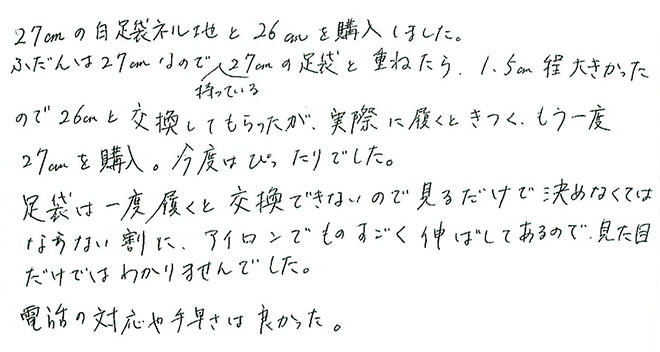 27cmの白足袋ネル地と26cmを購入しました。
ふだんは27cmなので、27cmの足袋と重ねたら、1.5cm程大きかった
持っている
ので26cmと交換してもらったが、実際に履くときつく、もう一度
27cmを購入。今度はぴったりでした。
足袋は一度履くと交換できないので見るだけで決めなくては
ならない割に、アイロンでものすごく伸ばしてあるので、見た目
だけではわかりませんでした。
電話の対応や手早さは良かった。